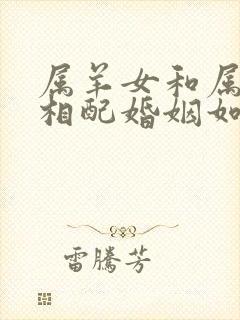 属羊女和属
相配婚姻如
雷腾芳